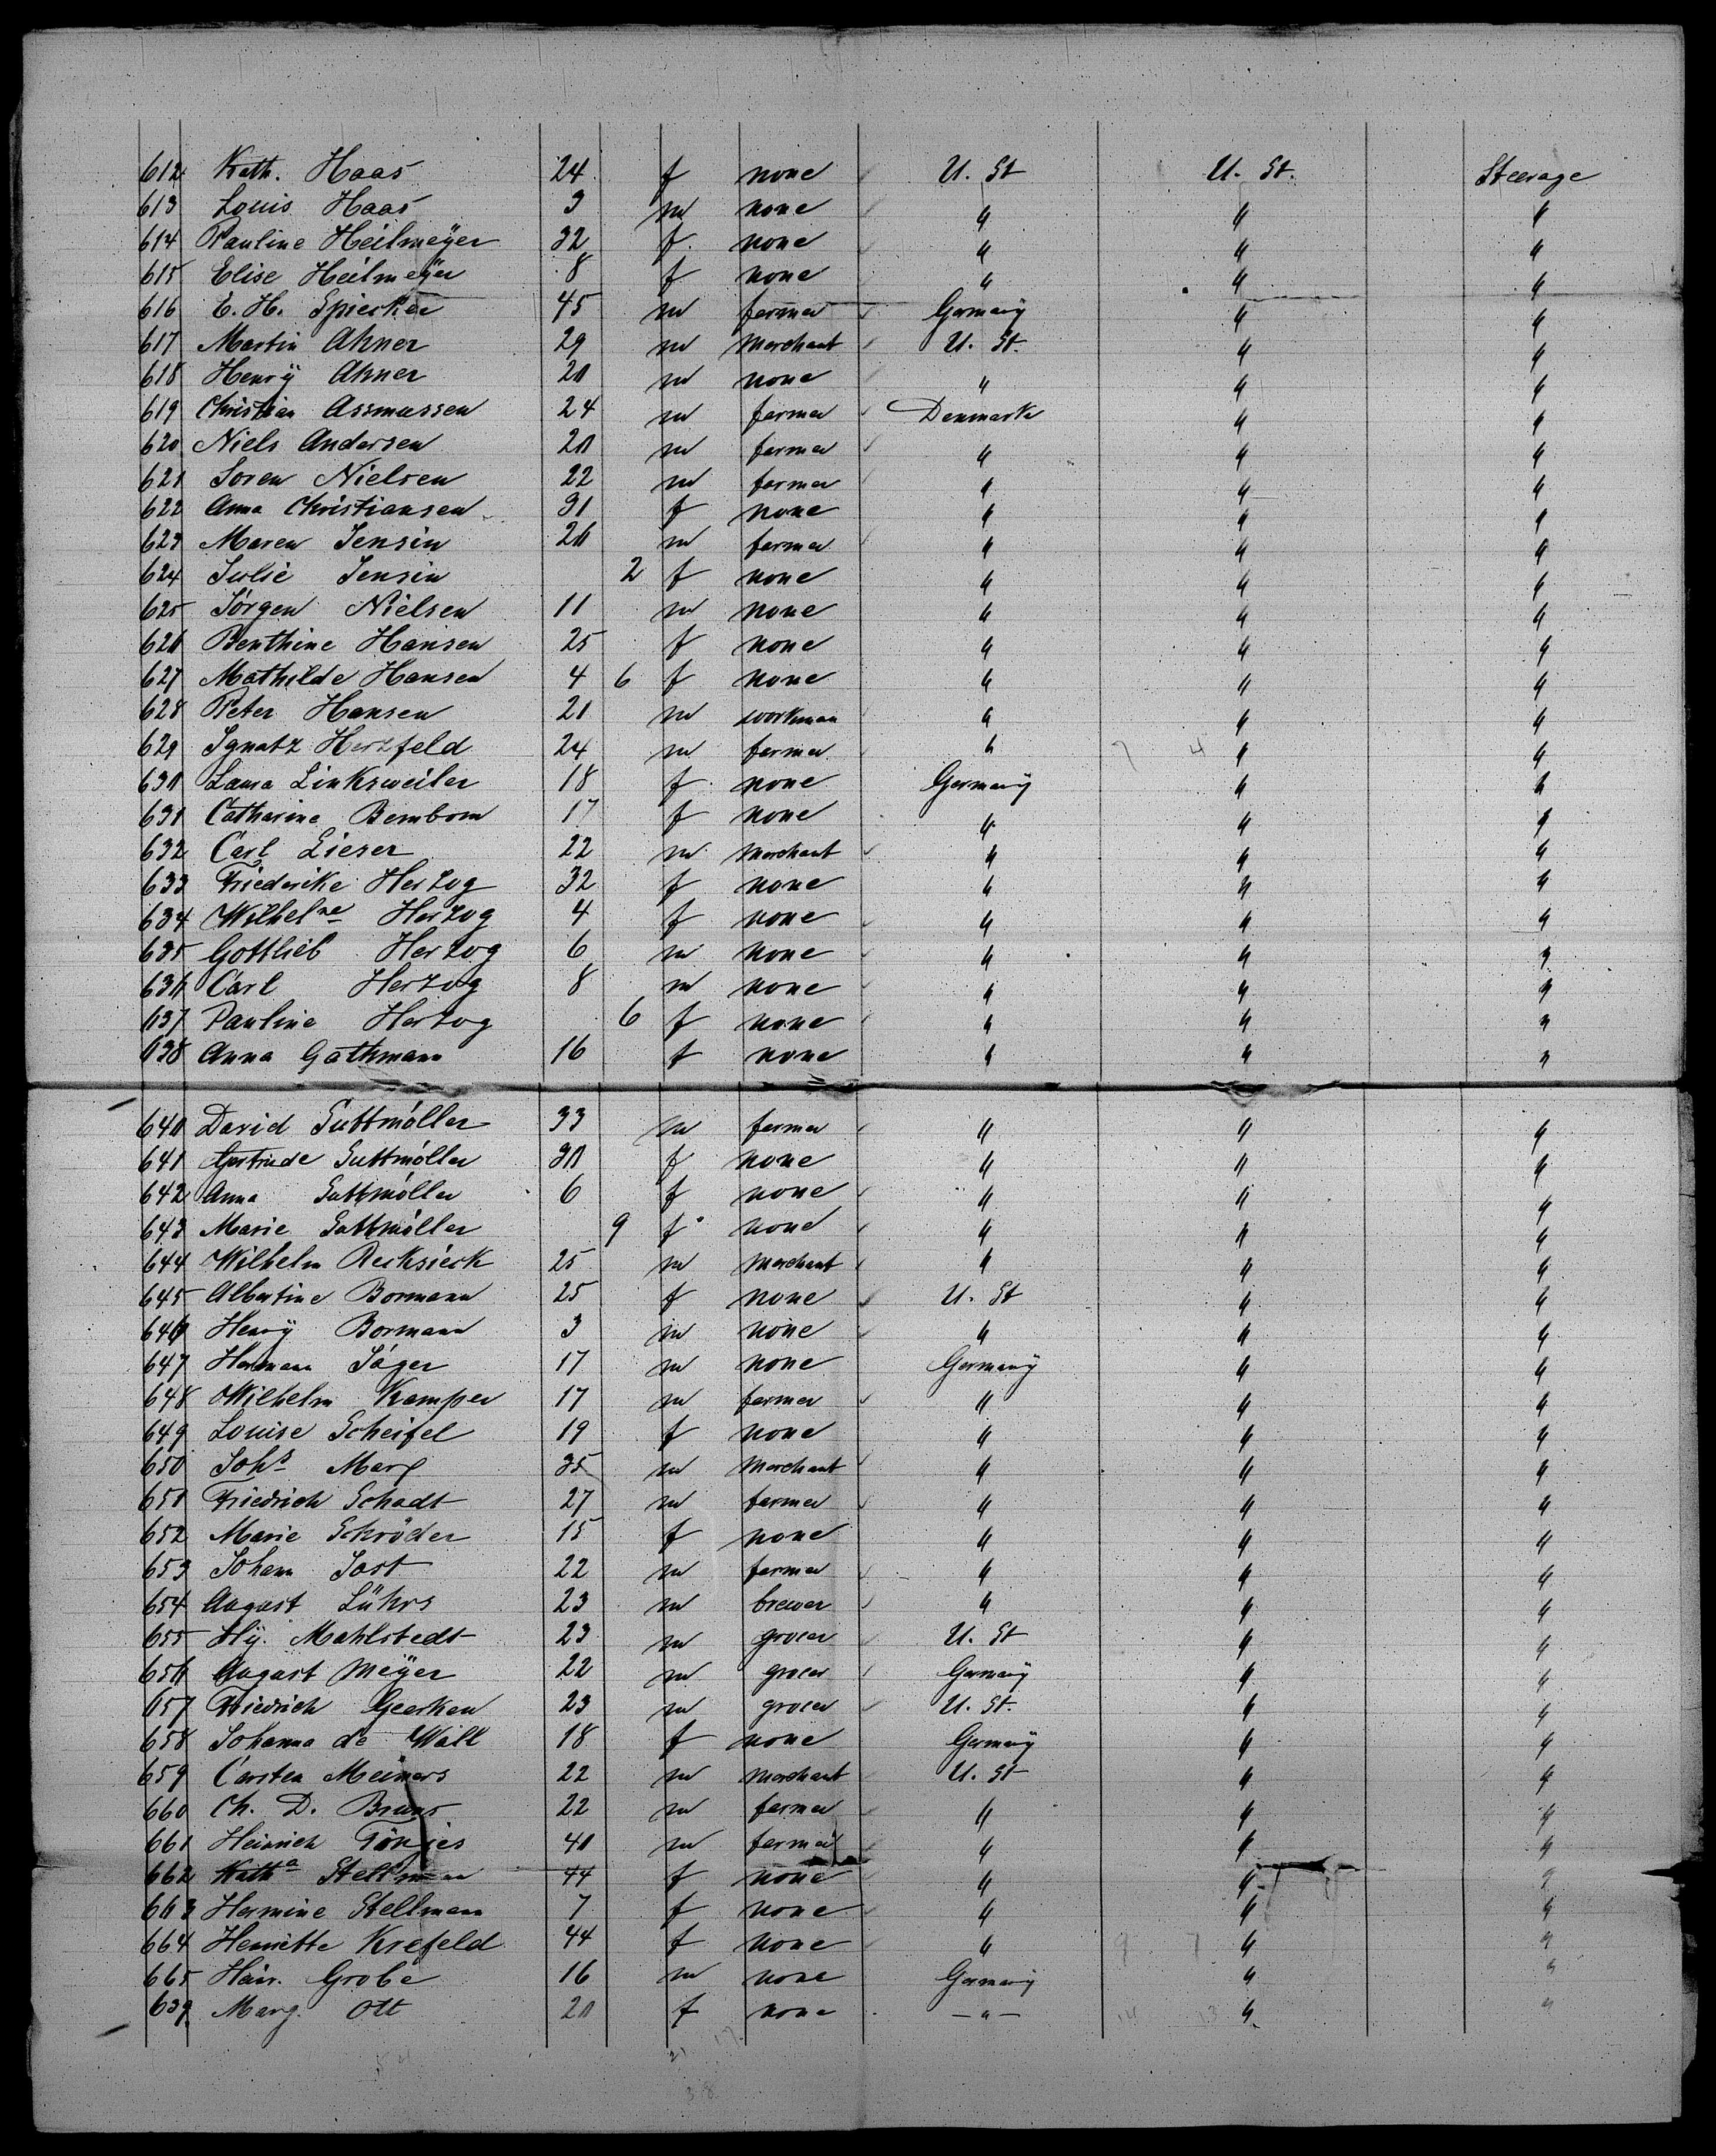 612 Kath. Haas 24 f none U. St U. St. Steerage
613 Louis Haas 3 m none " " "
614 Pauline Heilmeÿer 32 f. none " " "
615 Elise Heilmeÿer 8 f none " " "
616 E. H. Spiecker 45 m farmer Germanÿ " "
617 Martin Ahner 29 m merchant U. St. " "
618 Henrÿ Ahner 20 m none " " "
619 Christian Assmussen 24 m farmer Denmark " "
620 Niels Andersen 20 m farmer " " "
621 Soren Nielsen 22 m farmer " " "
622 Anna Christiansen 31 f none " " "
623 Maren Jensin 20 m farmer " " "
624 Julie Jensin 2 f none " " "
625 Jörgen Nielsen 11 m none " " "
626 Benthine Hansen 25 f none " " "
627 Mathilde Hansen 4 6 f none " " "
628 Peter Hansen 21 m workman " " "
629 Ignatz Herzfeld 24 m farmer " 7 4 " "
630 Laura Linksweiler 18 f none Germanÿ " "
631 Catharine Bembom 17 f none " " "
632 Carl Lieser 22 m merchant " " "
633 Friederike Herzog 32 f none " " "
634 Wilhelne Herzog 4 f none " " "
635 Gottlieb Herzog 6 m none " " "
636 Carl Herzog 8 m none " " "
637 Pauline Herzog 6 f none " " "
638 Anna Gathmann 16 f none " " "
640 David Suttmöller 33 m farmer " " "
641 Gertrude Suttmöller 30 f none " " "
642 Anna Suttmöller 6 f none " " "
643 Marie Suttmöller 9 f none " " "
644 Wilhelm Recksieck 25 m merchant " " "
645 Albertine Bormann 25 f none U. St " "
646 Henrÿ Bormann 3 m none " " "
647 Hermann Jäger 17 m none Germanÿ " "
648 Wilhelm Kamper 17 m farmer " " "
649 Louise Scheifel 19 f none " " "
650 Johs Marx 35 m merchant " " "
651 Friedrich Schadt 27 m farmer " " "
652 Marie Schröder 15 f none " " "
653 Johann Jost 22 m farmer " " "
654 August Lührs 23 m brewer " " "
655 Hÿ. Mahlstedt 23 m grocer U. St " "
656 August Meÿer 22 m grocer Germanÿ " "
657 Friedrich Geerken 23 m grocer U. St. " "
658 Johanna de Wall 18 f none Germanÿ " "
659 Carsten Meiners 22 m merchant U. St " "
660 Ch. D. Bruns 22 m farmer " " "
661 Heinrich Tönjes 40 m farmer " " "
662 Katha Stellmann 44 f none " " "
663 Hermine Stellmann 7 f none " " "
664 Henriette Krefeld 44 f none " 9 7 " "
665 Heinr. Grobe 16 m none Germanÿ " "
639 Marg. Ott 20 f none — " — 14 13 " "
38